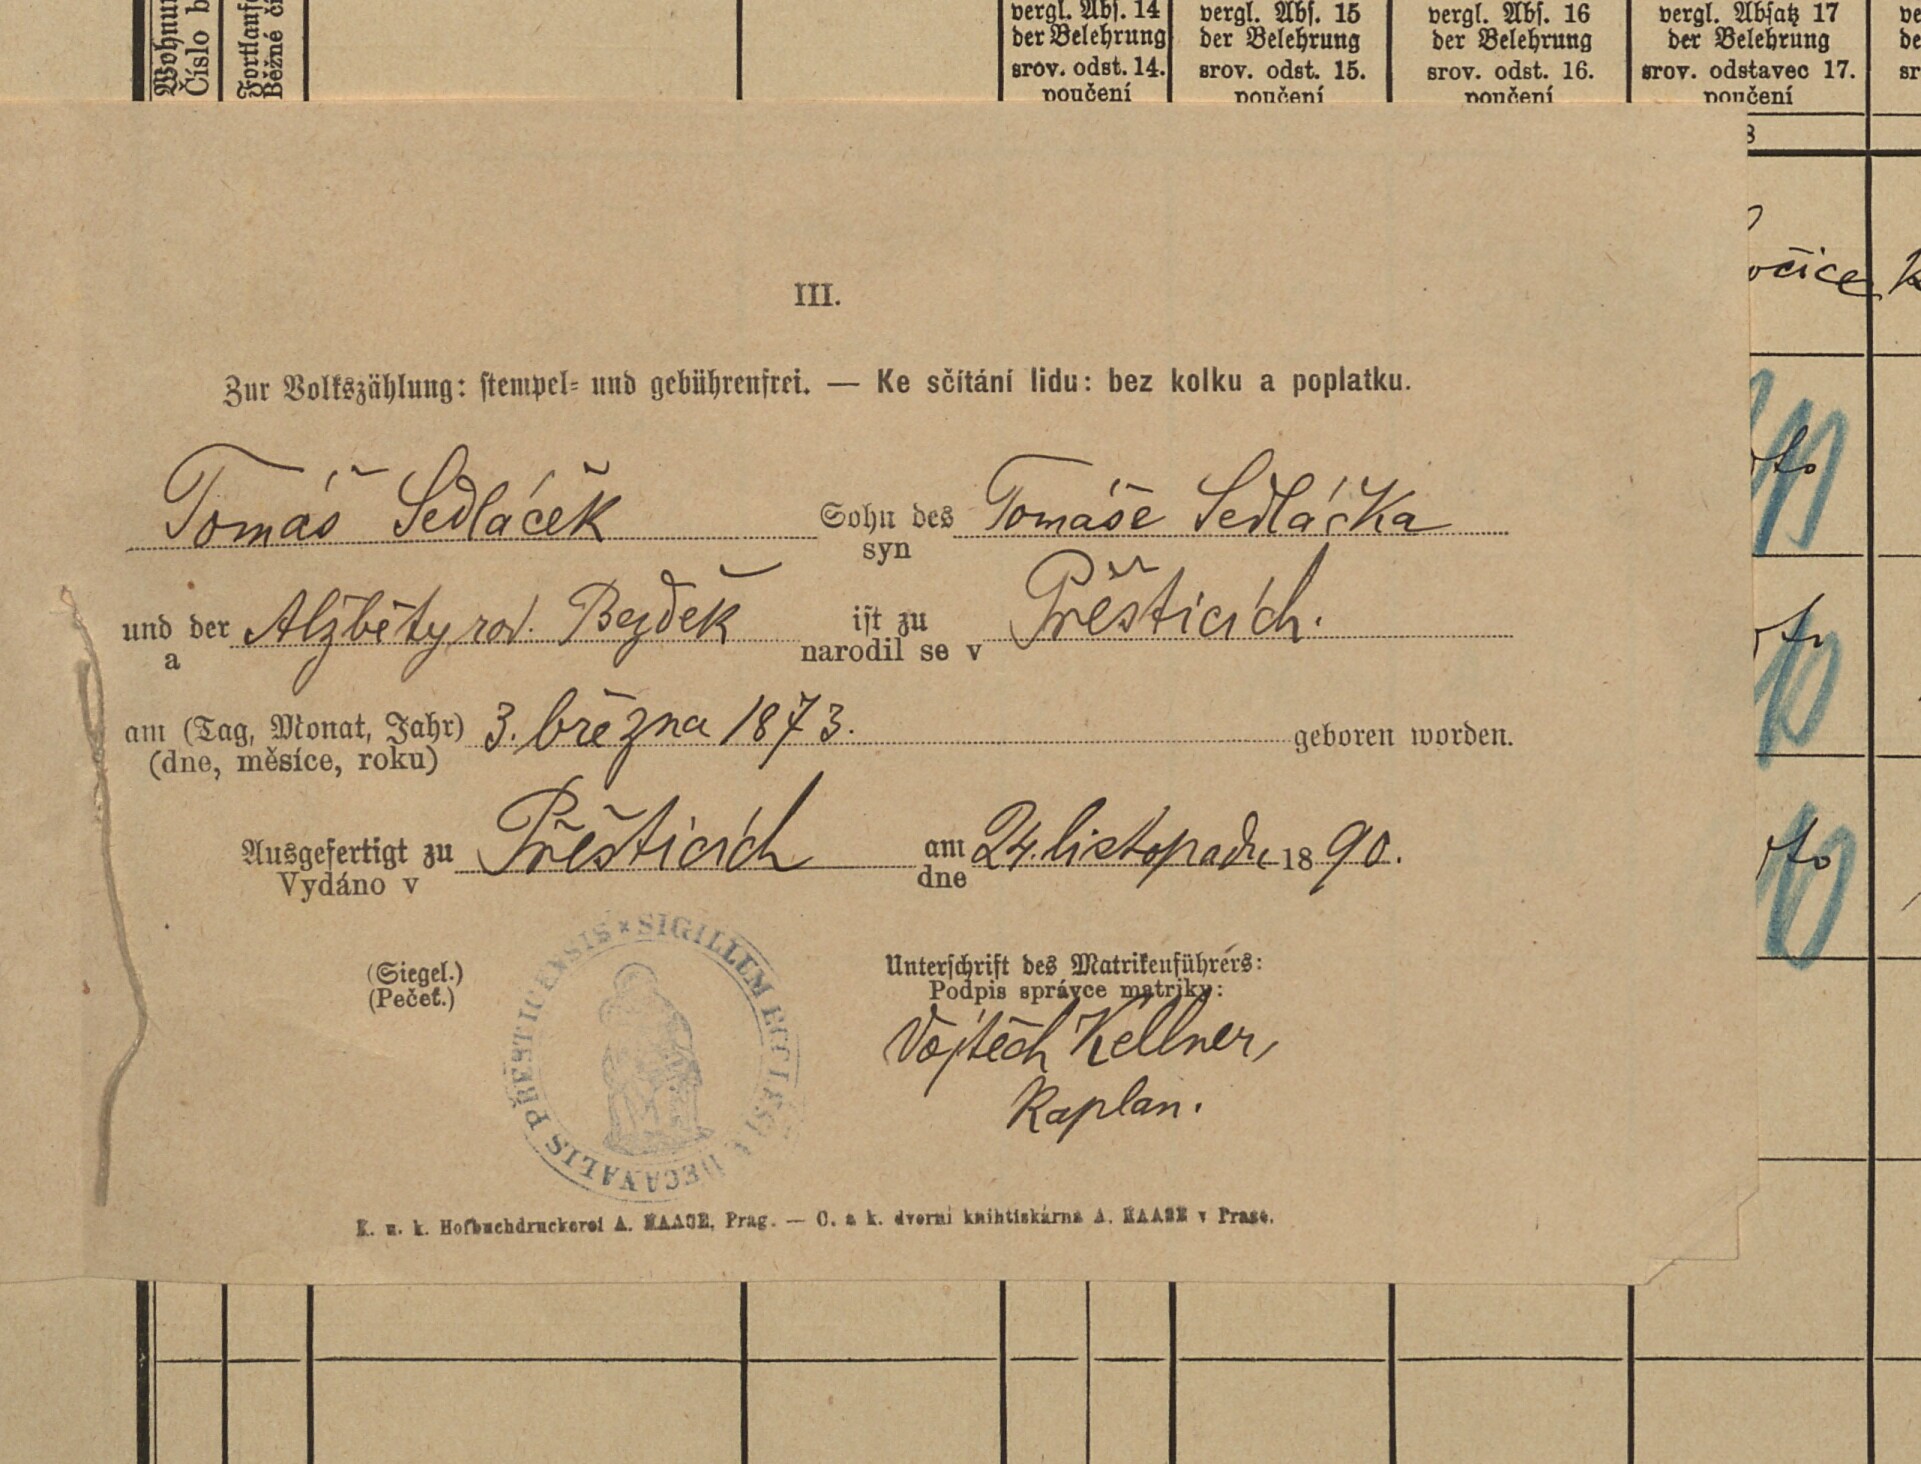 Wohnun
Číslo b
Fortlauf
Běžné čí
vergl. Abs. 14
der Belehrung
srov. odst. 14.
poučení
vergl. Abs. 15
der Belehrung
srov. odst. 15.
poučení
vergl. Abs. 16
der Belehrung
srov. odst. 16.
poučení
vergl. Absatz 17
der Belehrung
srov. odstavec 17.
poučení
III.
Zur Volkszählung: stempel- und gebührenfrei. — Ke sčítání lidu: bez kolku a poplatku.
Tomáš Sedláček Sohn des Tomáše Sedláčka
syn
und der Alžběty roz. Bezděk ist zu Přešticích.
a narodil se v
am (Tag, Monat, Jahr) 3. března 1873. geboren worden.
(dne, měsíce, roku)
Ausgefertigt zu Přešticích am 24. listopadu 1890.
Vydáno v dne
(Siegel.)
(Pečeť.)
SIGILLUM ECCLESIA DECANALIS PŘESTICENSIS
Unterschrift des Matrikenführers:
Podpis správce matriky:
Vojtěch Kellner,
Kaplan.
K. u. k. Hofbuchdruckerei A. HAASE, Prag. — C. a k. dvorní knihtiskárna A. HAASE v Praze.